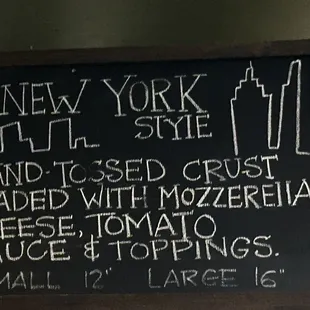 NEW YORK
STYLE
AND-TOSSED CRUST
ADED WITH MOZZERELLA
EESE, TOMATO
AUCE & TOPPINGS.
MALL 12" LARGE 16"